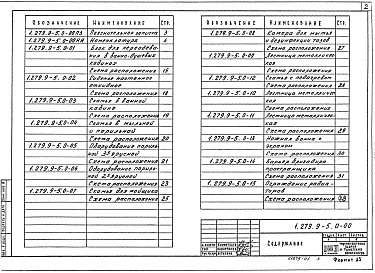 2
Обозначение Наименование Стр.
1.279.9-5.0-00ПЗ Пояснительная записка 3
1.279.9-5.0-00НИ Номенклатура 6
1.279.9-5.0-01 Блок для переодевания
в ванно-душевых
кабинах
Схема расположения 15
1.279.9-5.0-02 Сиденье
Схема расположения 18
1.279.9-5.0-03 Скамья в ванной
кабине
Схема расположения 19
1.279.9-5.0-04 Скамья в мыльной
и парильной
Схема расположения 20
1.279.9-5.0-05 Оборудование парильной
Схема расположения 21
1.279.9-5.0-06 Оборудование парильной
Схема расположения 23
1.279.9-5.0-07 Скамья для
Схема расположения 25
Обозначение Наименование Стр.
1.279.9-5.0-08 Камера для мытья
и дезинфекции тазов
Схема расположения 27
1.279.9-5.0-09 Лестница металлическая
Схема расположения
1.279.9-5.0-10 Скамья с подогревом
Схема расположения 28
1.279.9-5.0-10 Лестница металлическая
Схема расположения
1.279.9-5.0-11 Лестница металлическая
Схема расположения 29
1.279.9-5.0-13 Ножная ванна с
экраном
Схема расположения 30
1.279.9-5.0-14 Барьер
Схема расположения 31
1.279.9-5.0-15 Ограждение радиаторов
Схема расположения
1.279.9-5.0-00
Содержание
Формат А3